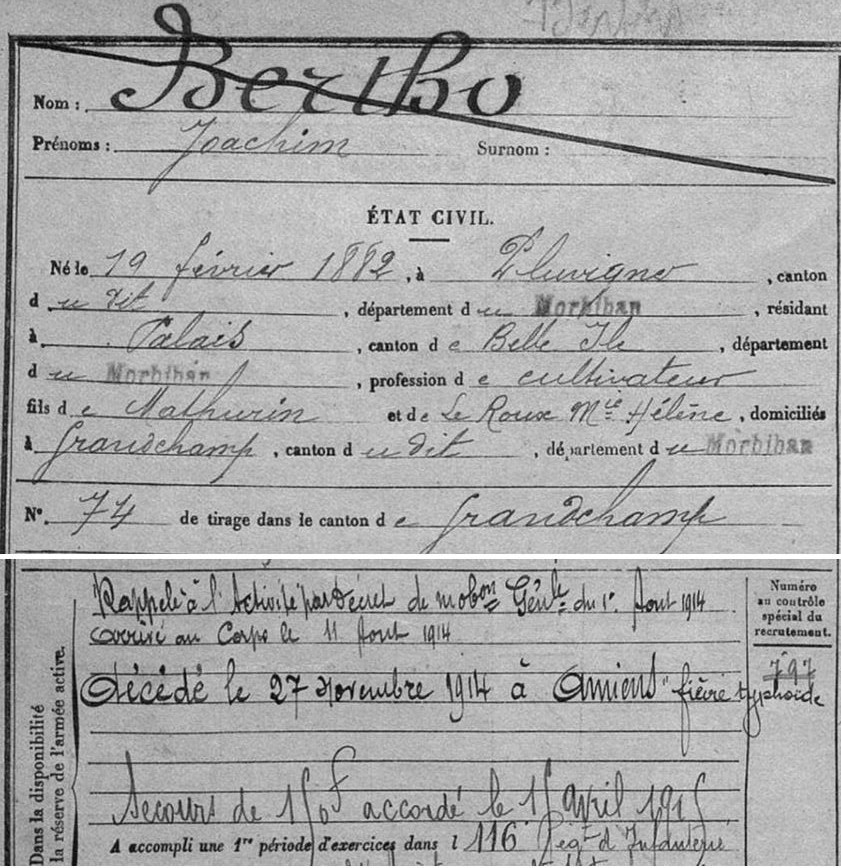 Nom : Bertho
Prénoms : Joachim Surnom :
ÉTAT CIVIL.
Né le 19 février 1882, à Pluvigner, canton
du dit, département du Morbihan, résidant
à Palais, canton de Belle Ile, département
du Morbihan, profession de cultivateur
fils de Mathurin et de Le Roux Mie Hélène, domiciliés
à Grandchamp, canton du dit, département du Morbihan
N° 74 de tirage dans le canton de Grandchamp
Rappelé à l'Activité par Décret de mobon Génle du 1er Aout 1914
arrivé au Corps le 11 Aout 1914
Décédé le 27 Novembre 1914 à Amiens "fièvre typhoïde
Secours de 150f accordé le 15 avril 1915
A accompli une 1re période d'exercices dans l 116 Regt d'Infanterie
Numéro
au contrôle
spécial du
recrutement.
797
Dans la disponibilité
la réserve de l'armée active.